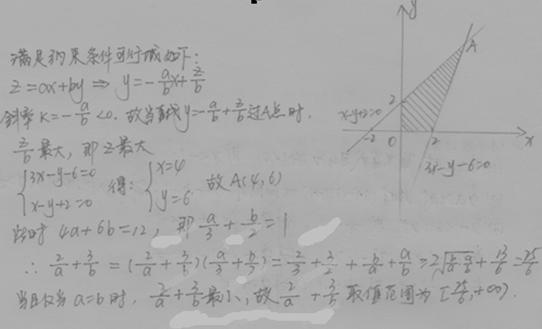 满足约束条件可行域如下:
z=ax+by ⇒ y=-\frac{a}{b}x+\frac{z}{b}
斜率K=-\frac{a}{b}<0. 故当直线y=-\frac{a}{b}+\frac{z}{b}过A点时,
\frac{z}{b}最大, 即z最大
{3x-y-6=0 得: {x=4 故A(4,6)
{x-y+2=0 {y=6
此时 4a+6b=12, 即\frac{a}{3}+\frac{b}{2}=1
∴ \frac{2}{a}+\frac{3}{b}=(\frac{2}{a}+\frac{3}{b})(\frac{a}{3}+\frac{b}{2})=\frac{2}{3}+\frac{3}{2}+\frac{b}{a}+\frac{a}{b}≥2\sqrt{\frac{b}{a}\frac{a}{b}}+\frac{13}{6}=\frac{25}{6}
当且仅当a=b时, \frac{2}{a}+\frac{3}{b}最小, 故\frac{2}{a}+\frac{3}{b}取值范围为[\frac{25}{6},+∞).
y
A
2
x-y+2=0
-2 0 2 x
3x-y-6=0